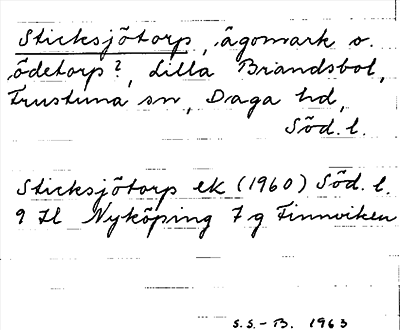 Sticksjötorp, ägomark o.
ödetorp?, Lilla Brandsbol,
Frustuna sn, Daga hd,
Söd. l.
Sticksjötorp ek (1960) Söd. l.
9 H Nyköping 7 g Finnviken
S.S.-B. 1963